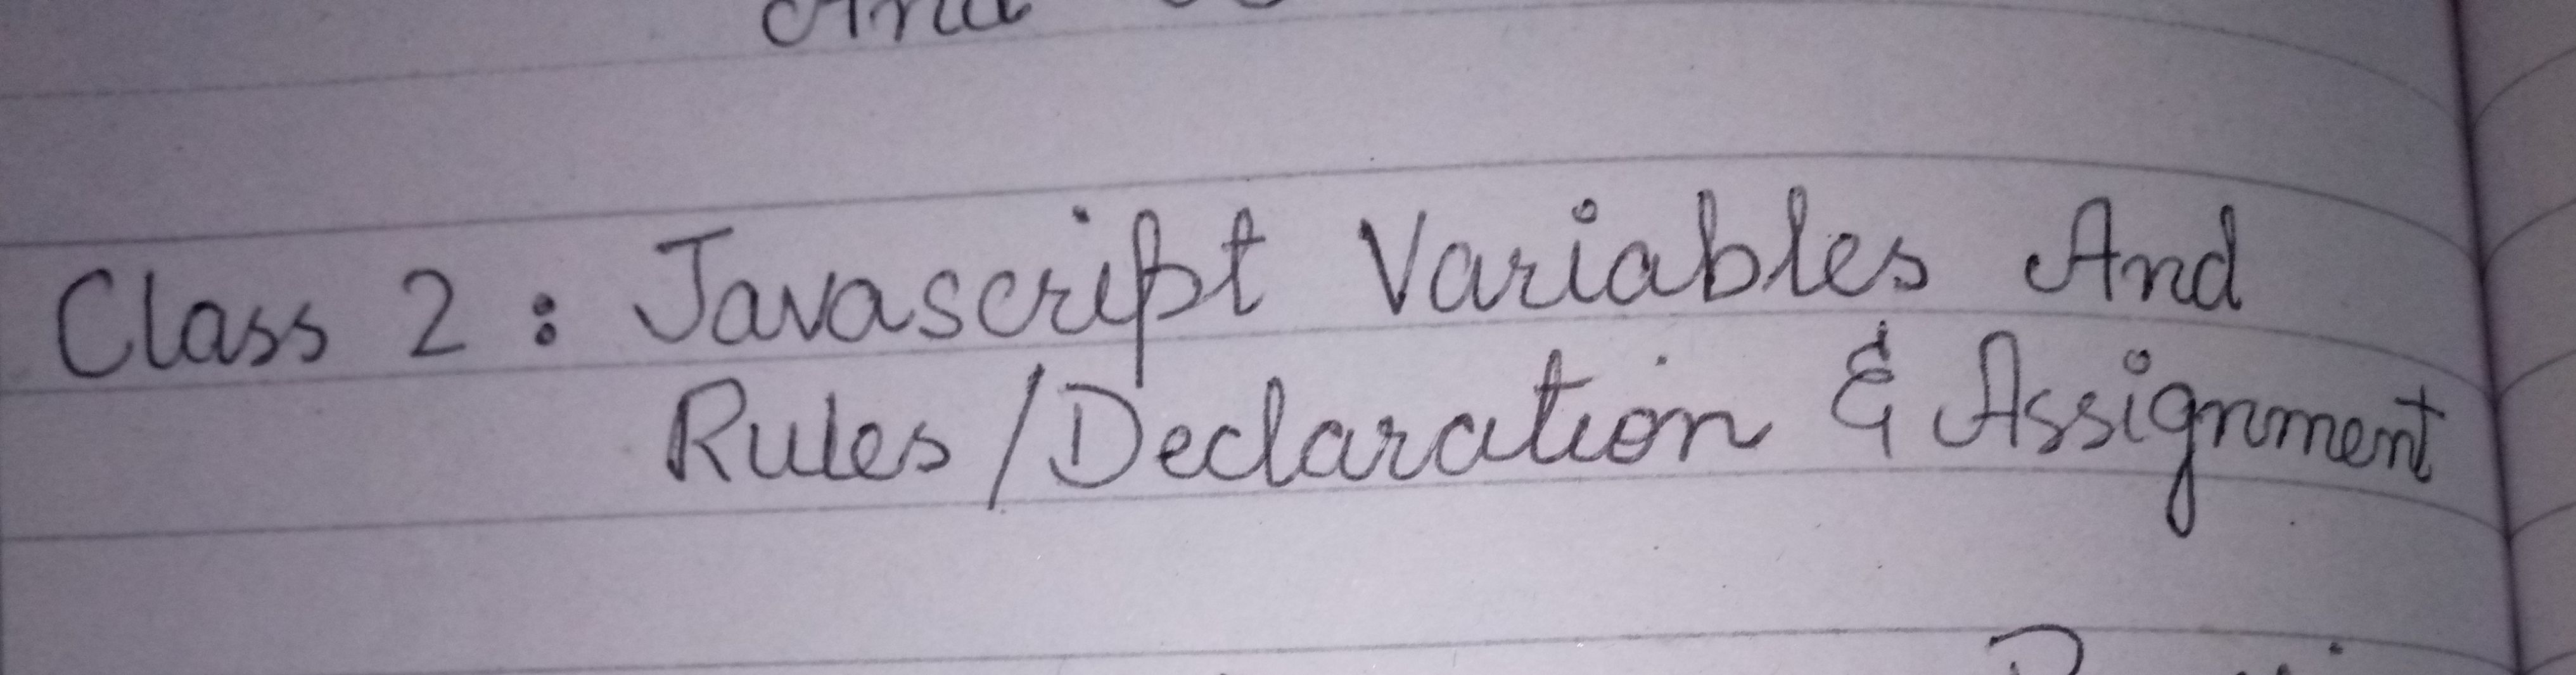 And
Class 2 : Javascript Variables And
Rules/Declaration & Assignment